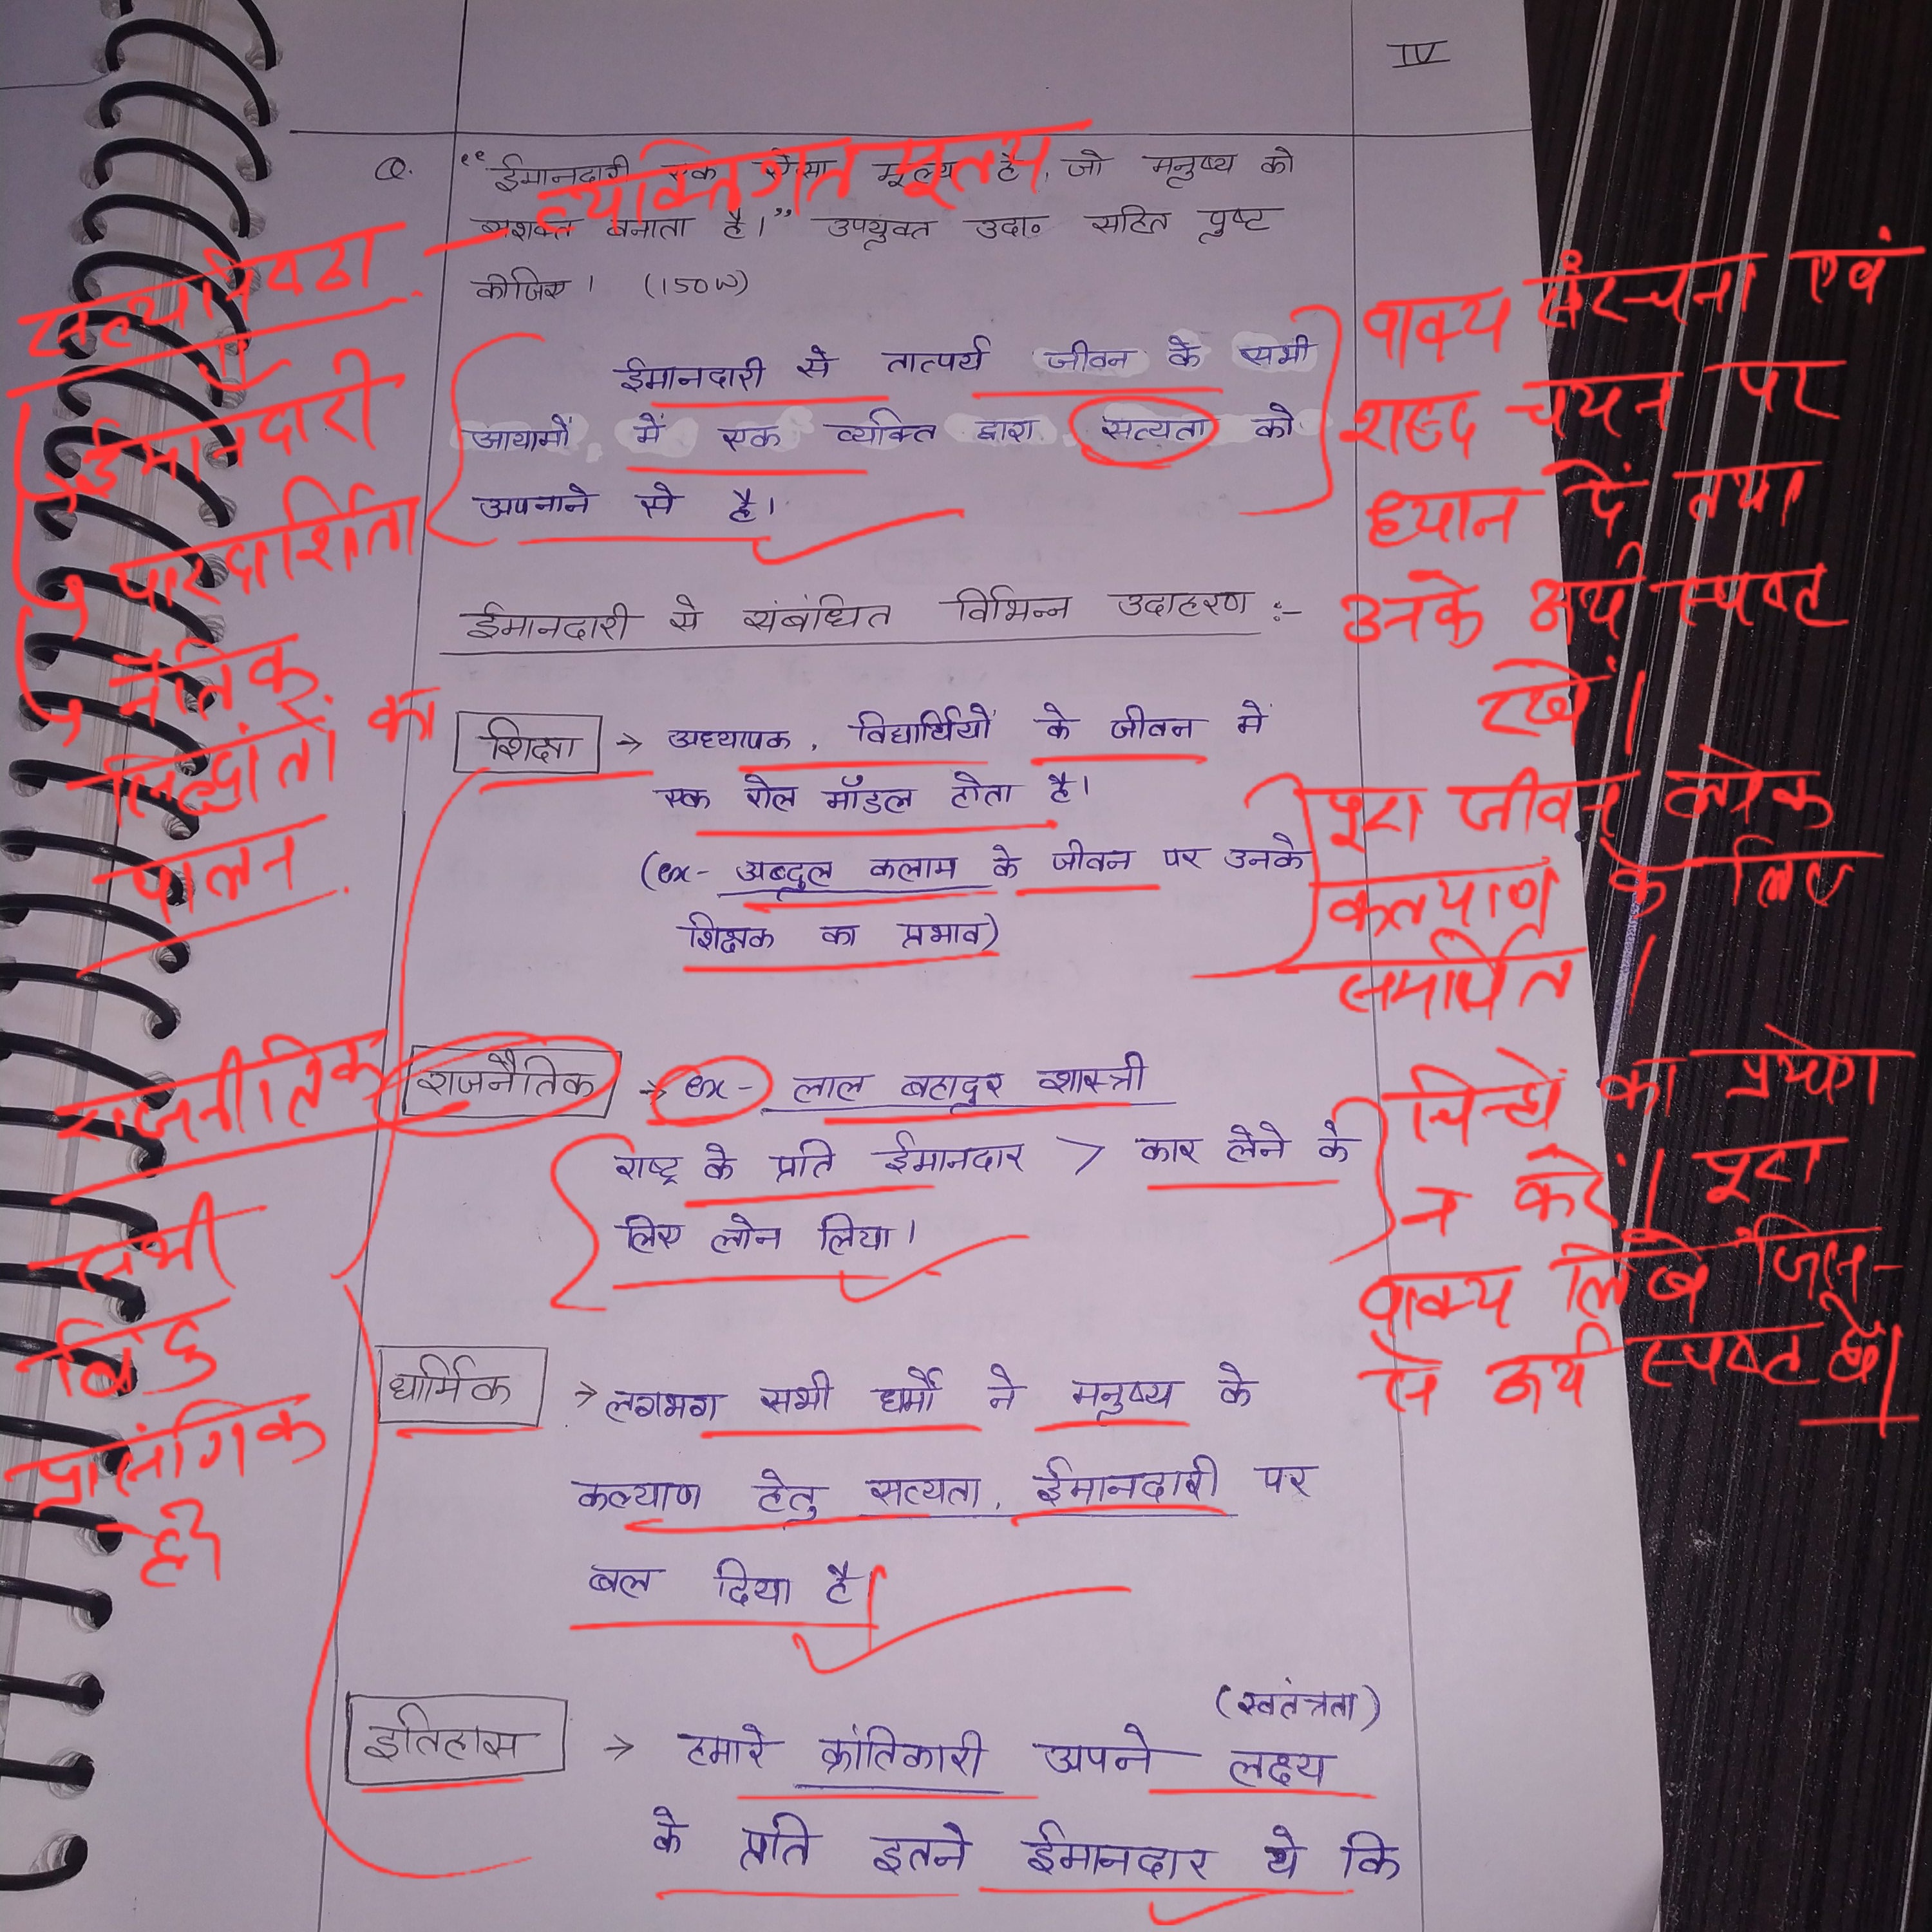 IV
Q. “ईमानदारी एक ऐसा मूल्य है, जो मनुष्य को
सशक्त बनाता है।” उपयुक्त उदा० सहित पुष्ट
कीजिए। (150W)
सत्यनिष्ठा — व्यक्तिगत मूल्य
ईमानदारी
पारदर्शिता
नैतिक
सिद्धांतों का
पालन
ईमानदारी से तात्पर्य जीवन के सभी
आयामों में एक व्यक्ति द्वारा सत्यता को
अपनाने से है।
वाक्य संरचना एवं
शब्द चयन पर
ध्यान दें तथा
उनके अर्थ स्पष्ट
रखें।
ईमानदारी से संबंधित विभिन्न उदाहरण :-
शिक्षा → अध्यापक, विद्यार्थियों के जीवन में
एक रोल मॉडल होता है।
(ex- अब्दुल कलाम के जीवन पर उनके
शिक्षक का प्रभाव)
पूरा जीवन लोक
कल्याण के लिए
समर्पित।
राजनीतिक
राजनैतिक → ex- लाल बहादुर शास्त्री
राष्ट्र के प्रति ईमानदार > कार लेने के
लिए लोन लिया।
चिन्हों का प्रयोग
न करें। पूरा
वाक्य लिखें जिस-
से अर्थ स्पष्ट हो।
सभी
बिंदु
प्रासंगिक
हैं
धार्मिक → लगभग सभी धर्मों ने मनुष्य के
कल्याण हेतु सत्यता, ईमानदारी पर
बल दिया है।
(स्वतंत्रता)
इतिहास → हमारे क्रांतिकारी अपने लक्ष्य
के प्रति इतने ईमानदार थे कि